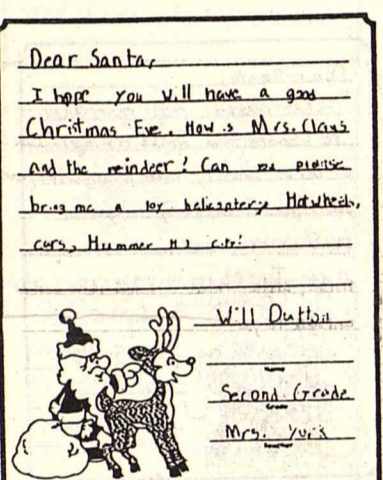 Dear Santa,
I hope you will have a good
Christmas Eve. How is Mrs. Claus
and the reindeer? Can you please
bring me a toy helicopter, Hotwheels,
cars, Hummer H2
Will Dutton
Name
Second Grade
Grade
Mrs. York
Teacher